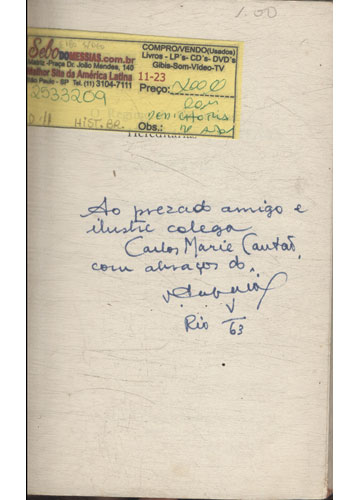 1.00
Sebo DOMESSIAS.com.br
Praça Dr. João Mendes, 140
Melhor Site da América Latina
São Paulo - SP Tel. (11) 3104-7111
2533209
HIST. BR.
COMPRO/VENDO(Usados)
Livros - LP's- CD's- DVD's
Gibis-Som-Vídeo-TV
11-23
Preço:
Com
DEDICATÓRIA
Obs.: do autor
Hereditárias
Ao prezado amigo e
ilustre colega
Carlos Marie Cantão,
com abraços do,
Rio V/63